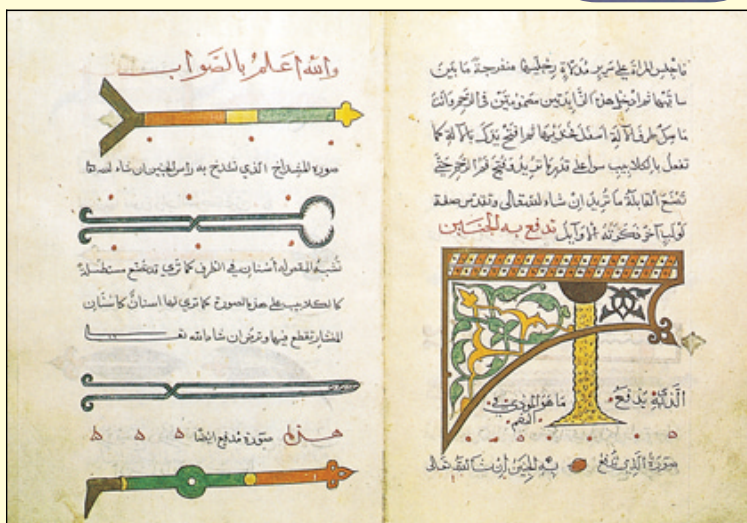 فاجلس المراة على سرير مدلاة رجليها منفرجة ما بين
ساقيها ثم ادخل هذه الزايدتين مضمومتين في الرحم وانت
ماسك طرف الآلة اسفل ثم افتح يدك بالآلة كما
تفعل بالكلاليب سوا على قدر ما تريد وتفتح فم الرحم حتى
تصنع القابلة ما تريد ان شاء الله تعالى صفة
لولب آخر ذكرته الاوايل تدفع به الجنين
الذي يدفع ما هو في
الفم
صورة الذي تدفع به الجنين ان شا الله تعالى
والله اعلم بالصواب
صورة المشداخ الذي تشدخ به راس الجنين ان شاء الله
تشبه المقص له أسنان في الطرف كما تري وقد تصنع مستطيلة
كالكلاليب على هذه الصورة كما تري لها اسنان كاسنان
المنشار يقطع فيها وترض ان شاء الله تعالى
هذه صورة مدفع ايضا